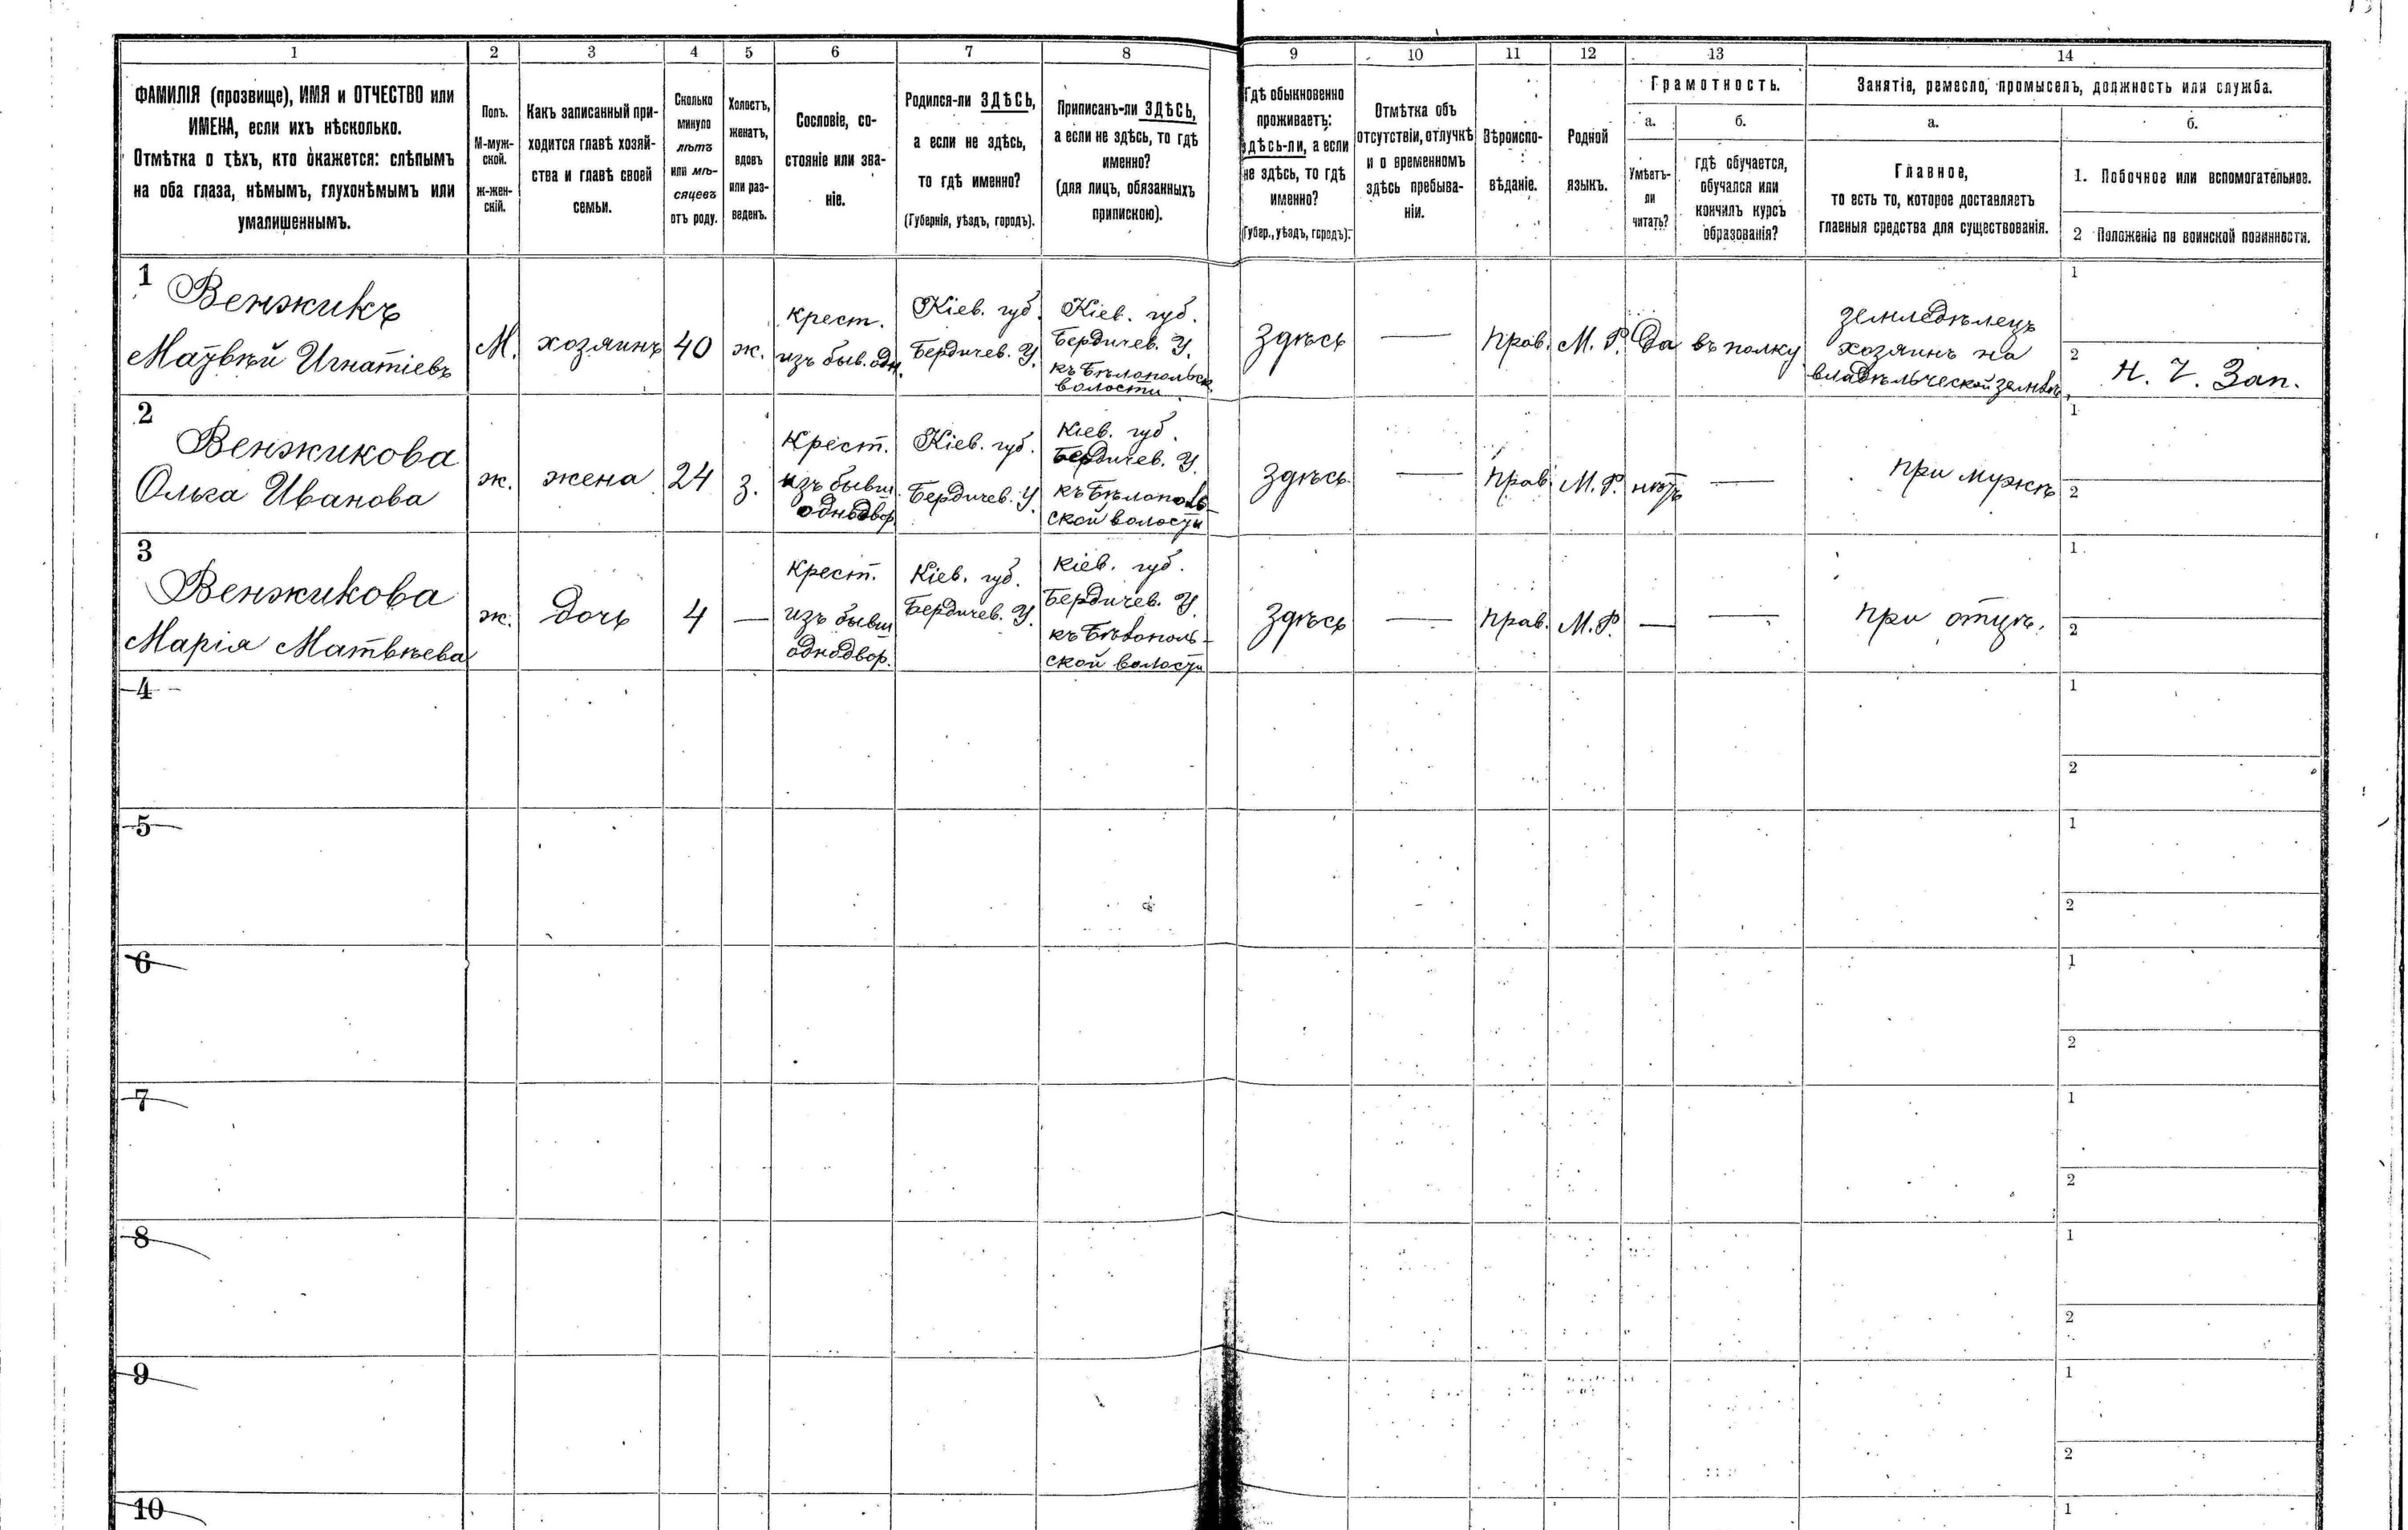 1 2 3 4 5 6 7 8 9 10 11 12 13 14
ФАМИЛІЯ (прозвище), ИМЯ и ОТЧЕСТВО или
ИМЕНА, если ихъ нѣсколько.
Отмѣтка о тѣхъ, кто окажется: слѣпымъ
на оба глаза, нѣмымъ, глухонѣмымъ или
умалишеннымъ.
Полъ.
М-муж-
ской.
ж-жен-
скій.
Какъ записанный при-
ходится главѣ хозяй-
ства и главѣ своей
семьи.
Сколько
минуло
лѣтъ
или мѣ-
сяцевъ
отъ роду.
Холостъ,
женатъ,
вдовъ
или раз-
веденъ.
Сословіе, со-
стояніе или зва-
ніе.
Родился-ли ЗДѢСЬ,
а если не здѣсь,
то гдѣ именно?
(Губернія, уѣздъ, городъ).
Приписанъ-ли ЗДѢСЬ,
а если не здѣсь, то гдѣ
именно?
(для лицъ, обязанныхъ
припискою).
Гдѣ обыкновенно
проживаетъ:
здѣсь-ли, а если
не здѣсь, то гдѣ
именно?
(Губер., уѣздъ, городъ).
Отмѣтка объ
отсутствіи, отлучкѣ
и о временномъ
здѣсь пребыва-
ніи.
Вѣроиспо-
вѣданіе.
Родной
языкъ.
Грамотность.
а.
Умѣетъ-
ли
читать?
б.
гдѣ обучается,
обучался или
кончилъ курсъ
образованія?
Занятія, ремесло, промыселъ, должность или служба.
а.
Главное,
то есть то, которое доставляетъ
главныя средства для существованія.
б.
1. Побочное или вспомогательное.
2 Положеніе по воинской повинности.
1
Венжикъ
Матвѣй Игнатіевъ
М.
хозяинъ
40
ж.
крест.
изъ быв. одн.
Кіев. губ.
Бердичев. У.
Кіев. губ.
Бердичев. У.
къ Бѣлопольск.
волости
здѣсь
—
прав.
М. Р.
Да
въ полку
земледѣлецъ
хозяинъ на
владѣльческой землѣ
1
2
Н. Ч. Зап.
2
Венжикова
Ольга Иванова
ж.
жена
24
з.
Крест.
изъ бывш.
однодвор.
Кіев. губ.
Бердичев. У.
Кіев. губ.
Бердичев. У.
къ Бѣлополь-
ской волости
здѣсь
—
прав.
М. Р.
нѣтъ
—
при мужѣ
1
2
3
Венжикова
Марія Матвѣева
ж.
дочь
4
—
Крест.
изъ бывш
однодвор.
Кіев. губ.
Бердичев. У.
Кіев. губ.
Бердичев. У.
къ Бѣлополь-
ской волости
здѣсь
—
прав.
М. Р.
—
—
при отцѣ.
1
2
4
1
2
5
1
2
6
1
2
7
1
2
8
1
2
9
1
2
10
1